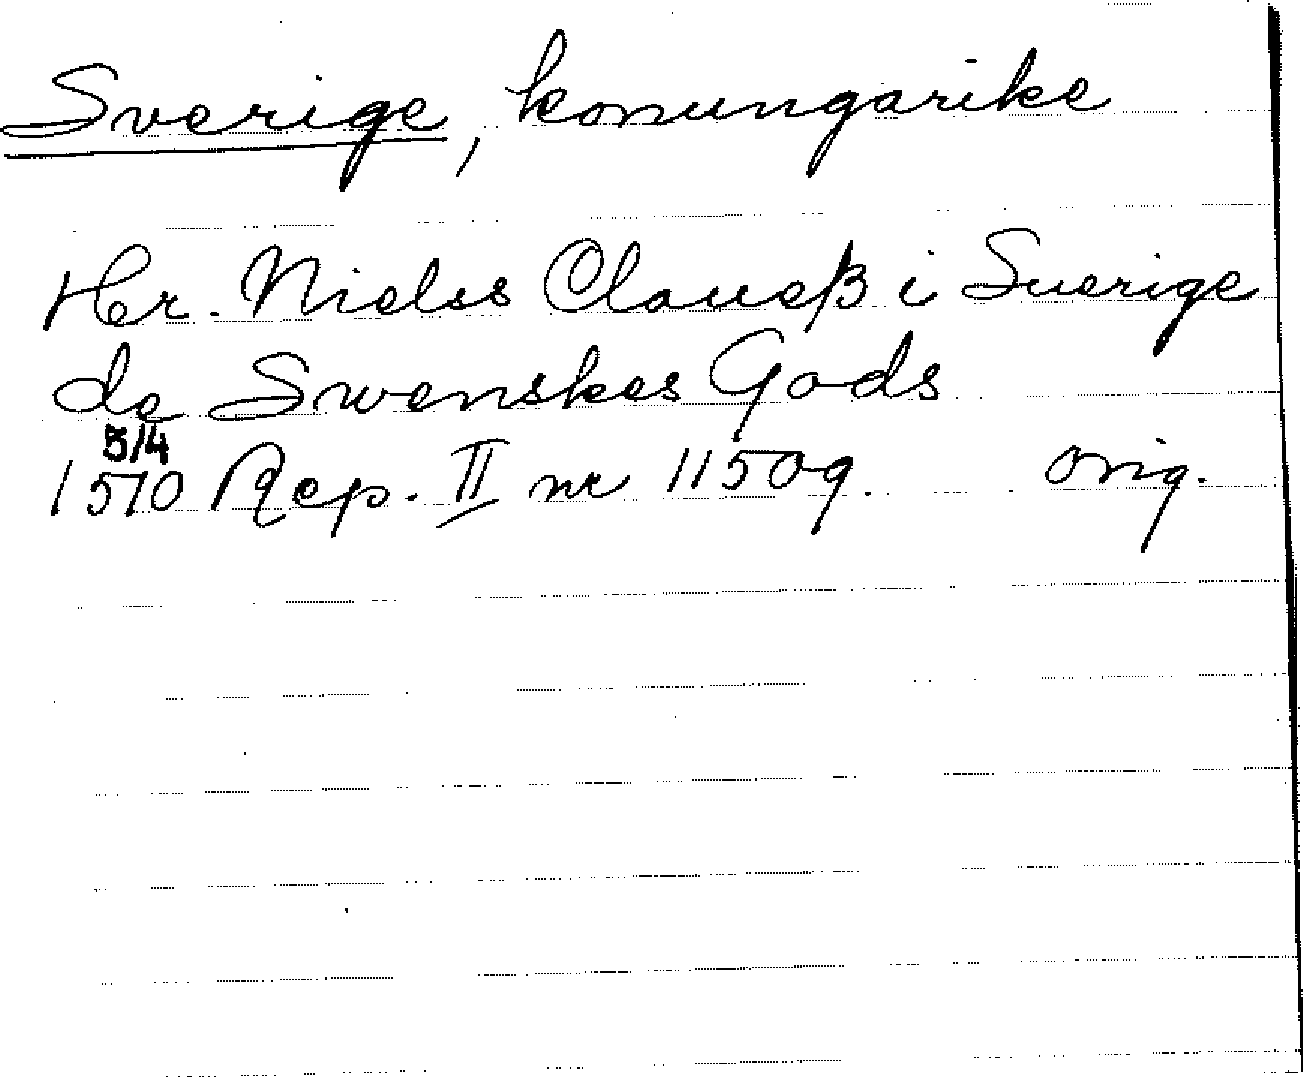 Sverige, konungarike
Hr. Nielss Claueß i Suerige
de Swenskes Gods
5/4
1510 Rep. II nr 11509. orig.